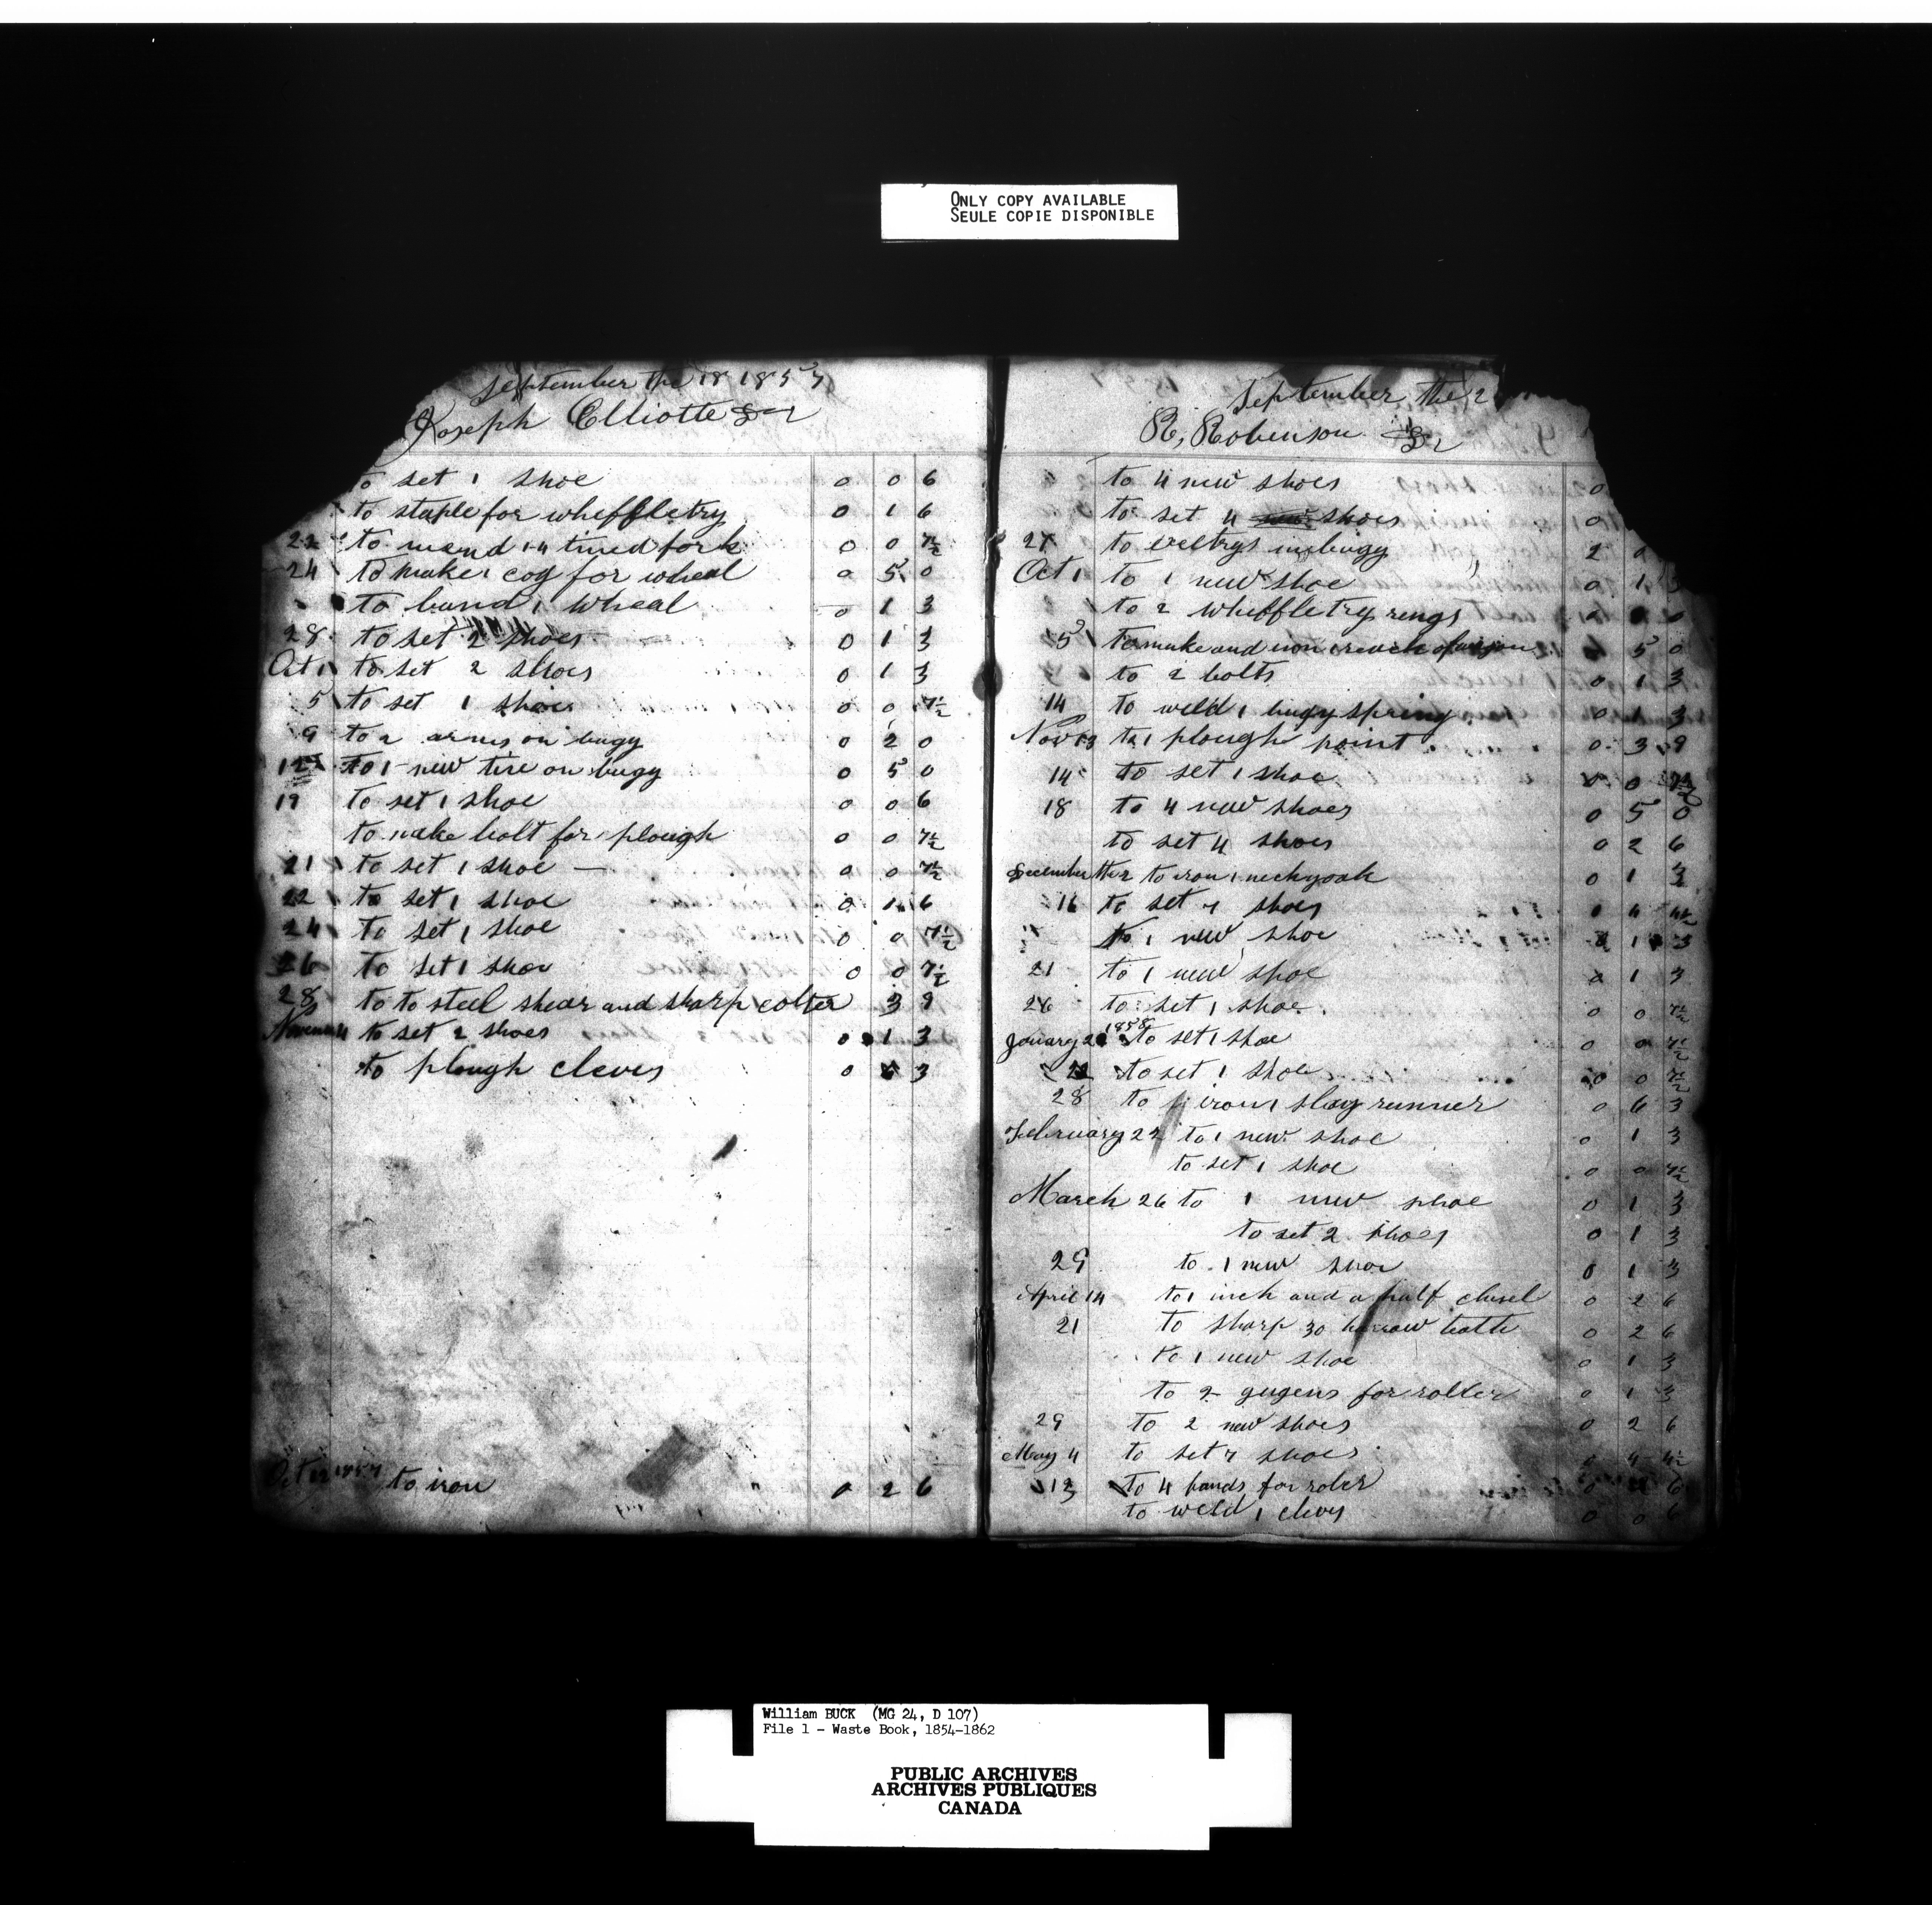 ONLY COPY AVAILABLE
SEULE COPIE DISPONIBLE
September the 18 1857
Joseph Elliotte Dr
to set 1 shoe 0 0 6
to staple for wheffletry 0 1 6
22 to mend 1 4 tined fork 0 0 7½
24 to make 1 cog for wheal 0 5 0
to band 1 wheal 0 1 3
28 to set 2 shoes 0 1 3
Oct 1 to set 2 shoes 0 1 3
5 to set 1 shoe 0 0 7½
9 to 2 arms on bugy 0 2 0
12 to 1 new tire on bugy 0 5 0
19 to set 1 shoe 0 0 6
to make bolt for plough 0 0 7½
21 to set 1 shoe — 0 0 7½
22 to set 1 shoe 0 1 6
24 to set 1 shoe 0 0 7½
26 to set 1 shoe 0 0 7½
28 to to steel shear and sharp colter 3 9
to set 2 shoes 0 1 3
to plough cleves 0 3
Oct 12 1857 to iron 0 2 6
September the 2
R, Robenson Dr
to 4 new shoes 0
to set 4 shoes 0
27 to in bugy 2
Oct 1 to 1 new shoe 0 1 3
to 2 wheffletry rings 0
5 to make and iron 1 reach of wagon 5 0
to 2 bolts 0 1 3
14 to weld 1 bugy spring 0 1 3
Nov 13 to 1 plough point 0 3 9
14 to set 1 shoe 0 7½
18 to 4 new shoes 0 5 0
to set 4 shoes 0 2 6
December the 2 to iron 1 neckyoak 0 1 3
16 to set 7 shoes 0 4 4½
to 1 new shoe 1 3
21 to 1 new shoe 0 1 3
26 to set 1 shoe 0 0 7½
1858
January 2 to set 1 shoe 0 0 7½
to set 1 shoe 0 0 7½
28 to iron 1 slay runner 0 6 3
February 22 to 1 new shoe 0 1 3
to set 1 shoe 0 0 7½
March 26 to 1 new shoe 0 1 3
to set 2 shoes 0 1 3
29 to 1 new shoe 0 1 3
April 14 to 1 inch and a half chisel 0 2 6
21 to sharp 30 harrow teath 0 2 6
to 1 new shoe 0 1 3
to 2 gugens for roller 0 1 3
29 to 2 new shoes 0 2 6
May 4 to set 7 shoes 0 4 4½
13 to 4 bands for roler 0 6
to weld 1 cleves 0 0 6
William BUCK (MG 24, D 107)
File 1 - Waste Book, 1854-1862
PUBLIC ARCHIVES
ARCHIVES PUBLIQUES
CANADA